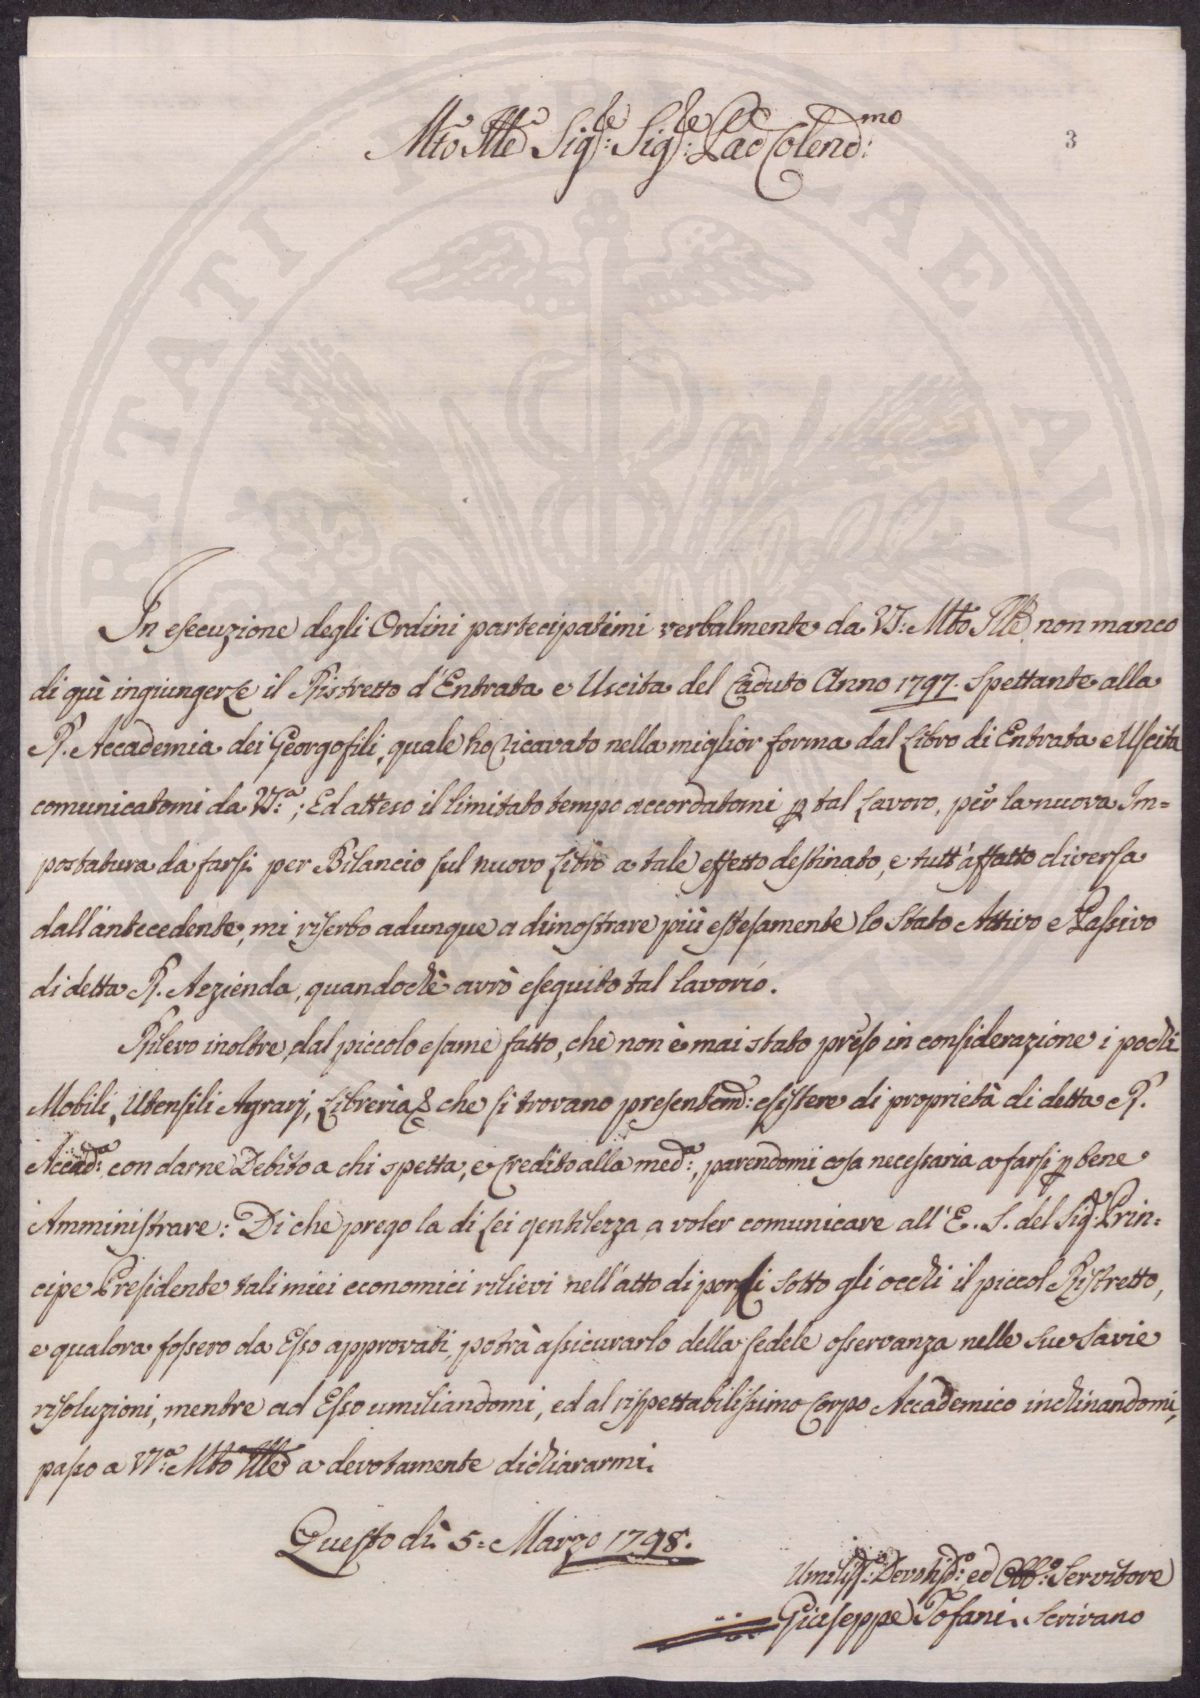 Mto Ille Sigre: Sigre: Pad Colendmo:
3
In esecuzione degli Ordini partecipatimi verbalmente da VS: Mto Ille non manco
di quì ingiungerLe il Ristretto d'Entrata e Uscita del Caduto Anno 1797. Spettante alla
R. Accademia dei Georgofili, quale ho ricavato nella miglior forma dal Libro di Entrata e Uscita
comunicatomi da VS.a; Ed atteso il limitato tempo accordatomi p tal Lavoro, per la nuova Im=
postatura da farsi per Bilancio sul nuovo Libro a tale effetto destinato, e tutt'affatto diversa
dall'antecedente, mi riserbo adunque a dimostrare più estesamente lo Stato Attivo e Passivo
di detta R. Azienda, quandochè avrò eseguito tal lavorío.
Rilevo inoltre dal piccolo esame fatto, che non è mai stato preso in considerazione i pochi
Mobili, Utensili Agrarj, Libreria & che si trovano presentemd: esistere di proprietà di detta R.
Accada: con darne Debito a chi spetta, e Credito alla meda:, parendomi cosa necessaria a farsi p bene
Amministrare: Di che prego la di Lei gentilezza a voler comunicare all'E. S. del Sigr Prin=
cipe Presidente tali miei economici rilievi nell'atto di porgli sotto gli occhi il piccol Ristretto,
e qualora fossero da Esso approvati, potrà assicurarlo della fedele osservanza nelle sue Savie
risoluzioni, mentre ad Esso umiliandomi, ed al rispettabilissimo Corpo Accademico inchinandomi,
passo a VS.a Mto Ille a devotamente dichiararmi.
Questo dì 5= Marzo 1798.
Umiliss:o Devotiss:o ed Obb:o Servitore
Giuseppe Tofani Scrivano